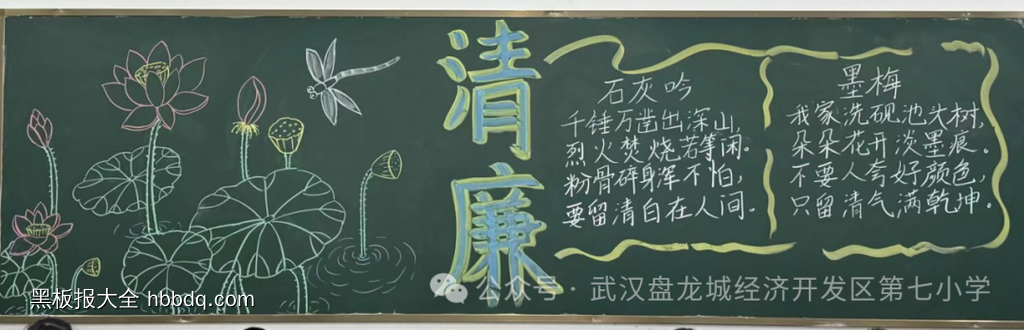 清廉
石灰吟
千锤万凿出深山,
烈火焚烧若等闲.
粉骨碎身浑不怕,
要留清白在人间.
墨梅
我家洗砚池头树,
朵朵花开淡墨痕.
不要人夸好颜色,
只留清气满乾坤.
黑板报大全 hbbdq.com
公众号·武汉盘龙城经济开发区第七小学